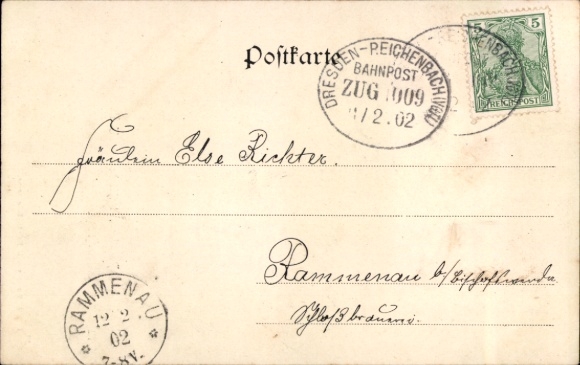 Postkarte
DRESDEN-REICHENBACH (Vgtl)
BAHNPOST
ZUG 1009
2.02
5 5
REICHSPOST
Fräulein Else Richter.
Rammenau b/Bischofswerda
Schloßbrauerei.
RAMMENAU
12 2
02
7-8V.